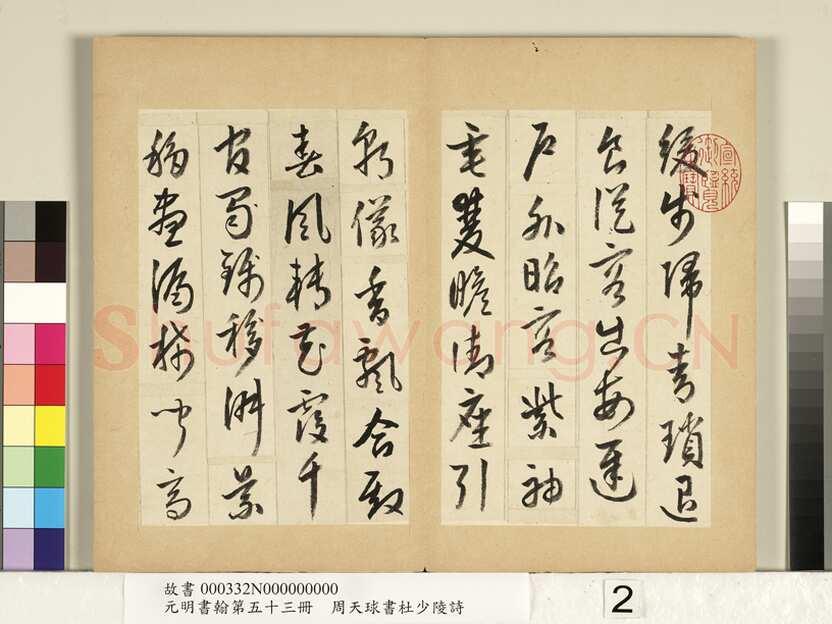 緩步歸青瑣退
食從容出每遲
戶外昭容紫袖
垂雙瞻御座引
朝儀香飄合殿
春風轉花覆千
官淑景
移晝漏稀聞高
宣統御覽之寶
Shufawang.CN
故書 000332N000000000
元明書翰第五十三冊 周天球書杜少陵詩
2